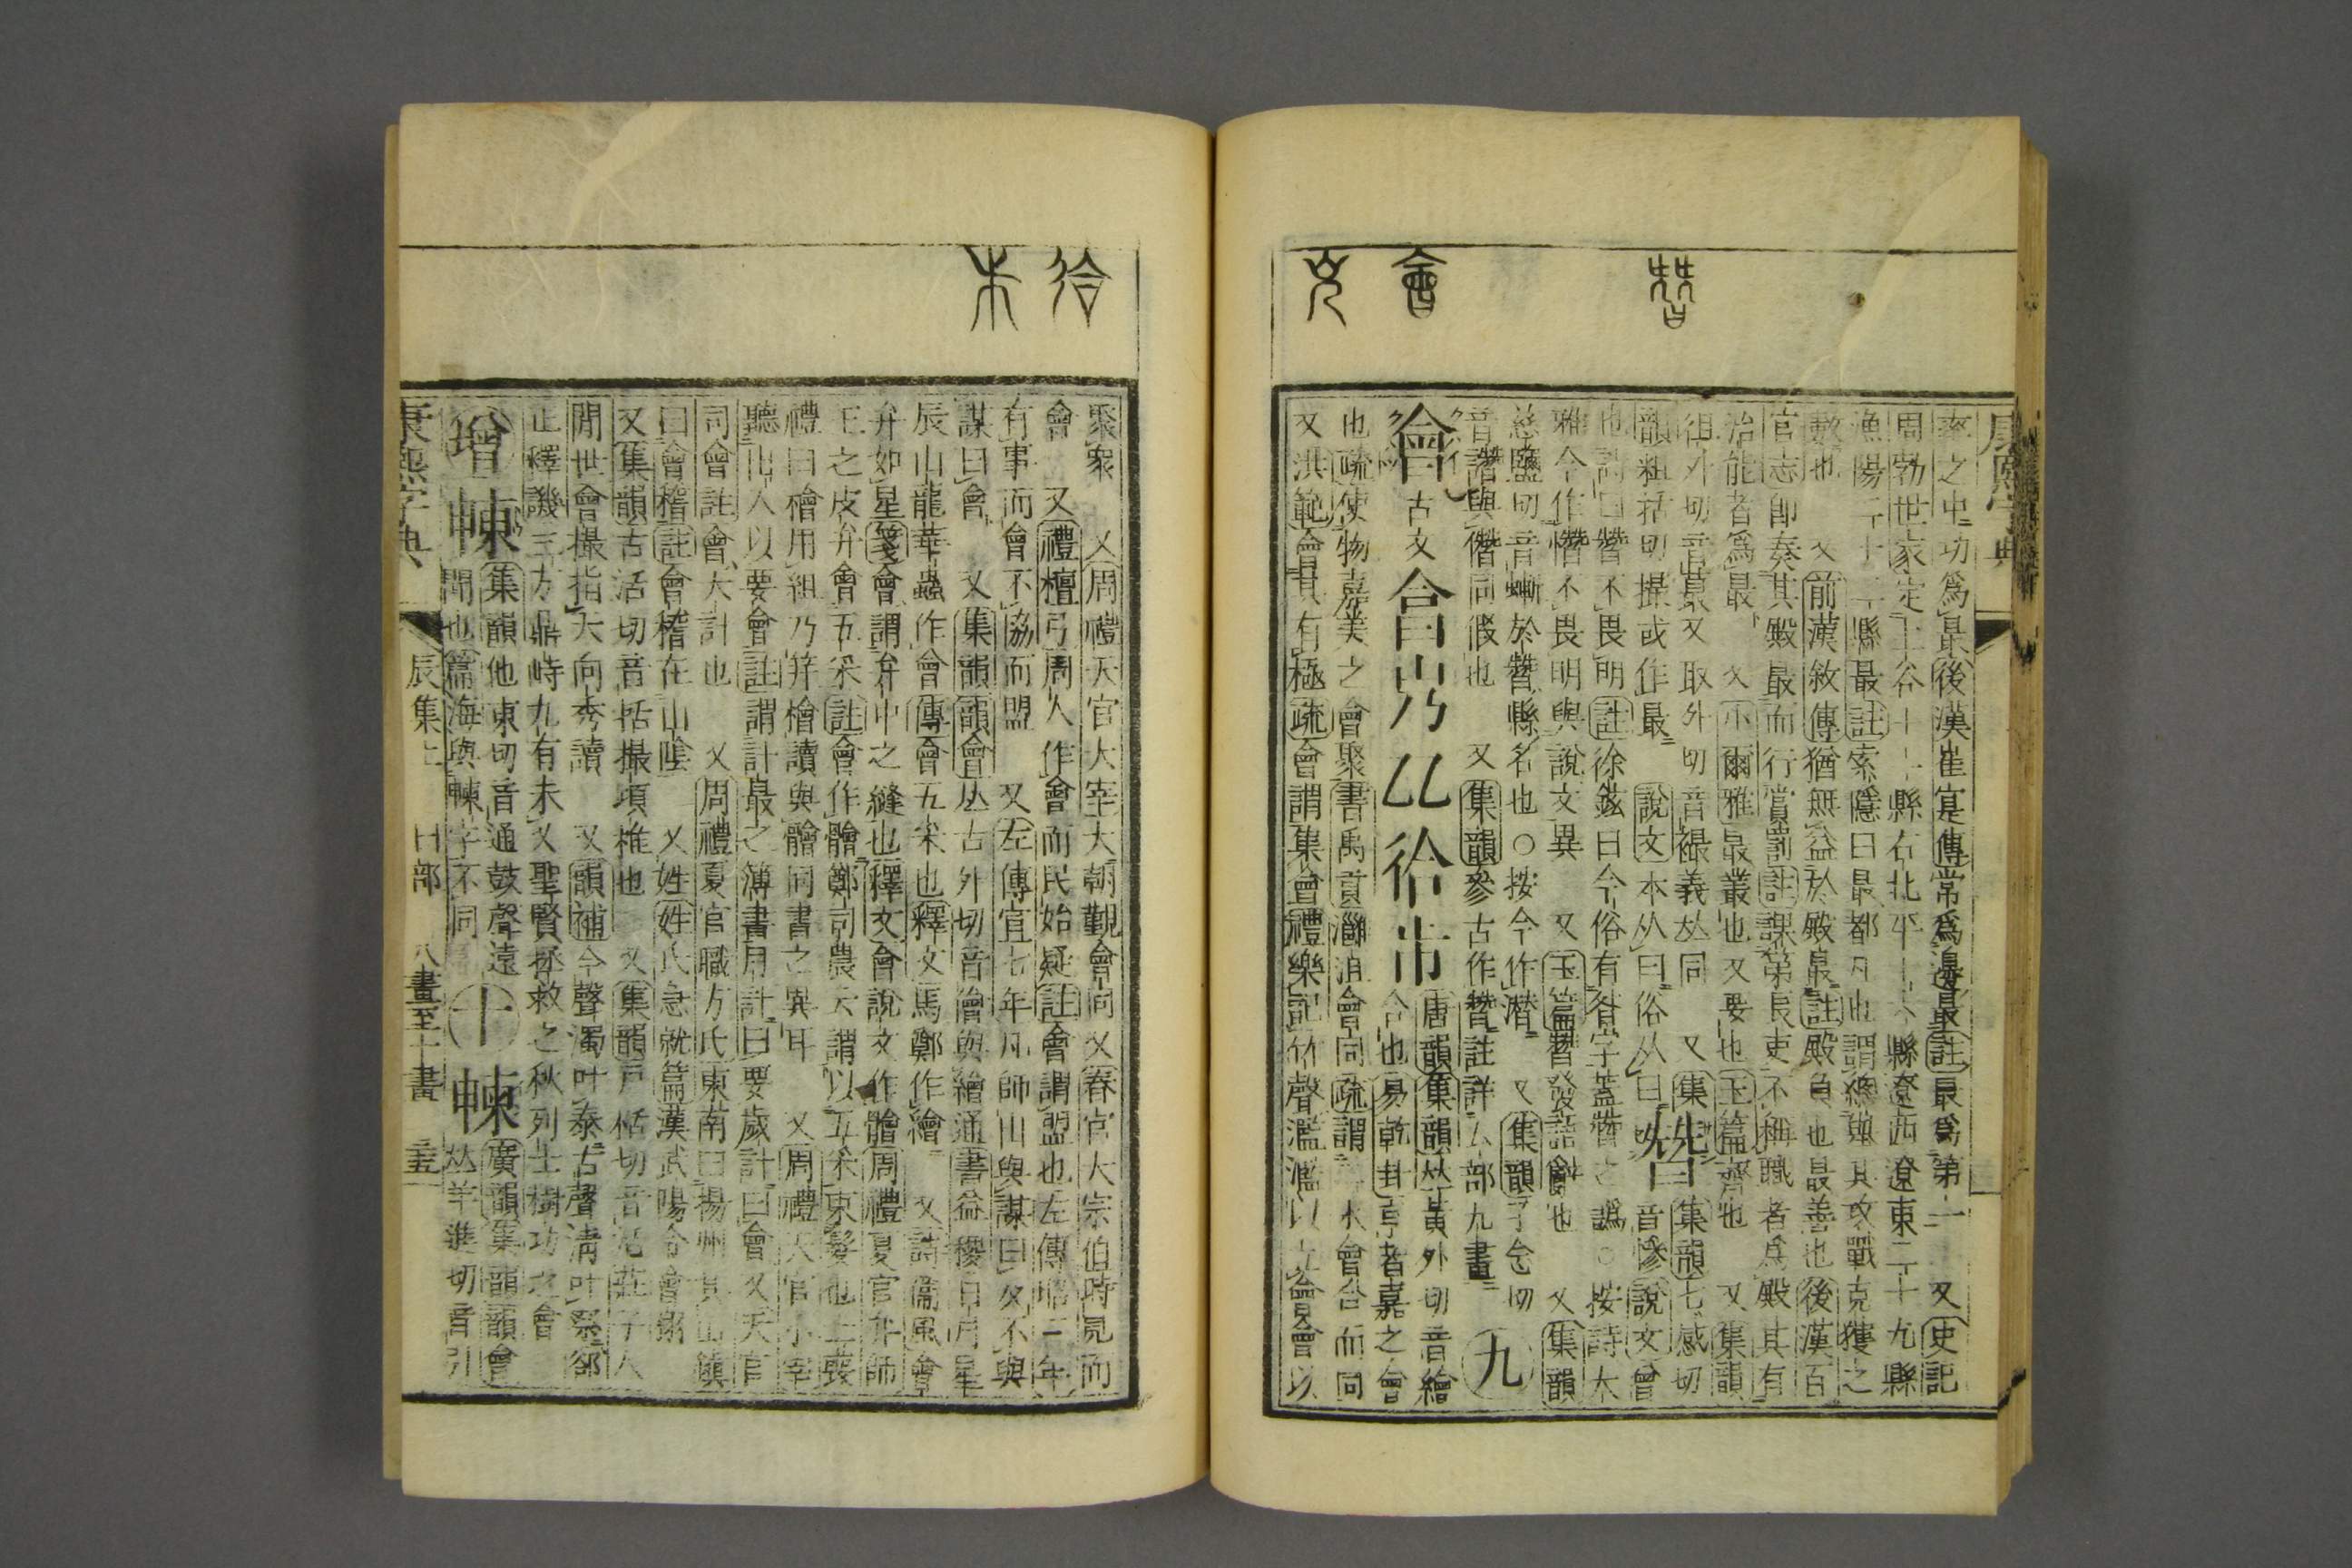 率之中功爲最後漢崔寔傳常爲邊最註最爲第一 又史記
周勃世家定上谷十二縣右北平十六縣遼西遼東二十九縣
漁陽二十二縣最註索隱曰最都凡也謂總舉其攻戰克獲之
數也 又前漢敘傳猶無益於殿最註殿負也最善也後漢百
官志卽奏其殿最而行賞罰註課第長吏不稱職者爲殿其有
治能者爲最 又小爾雅最叢也又要也玉篇齊也 又集韻
徂外切音蕞又取外切音襊義𠀤同 又集
韻粗括切撮或作最 說文本从曰俗从曰
朁 集韻七感切音慘說文曾
也詩曰朁不畏明註徐鉉曰今俗有昝字蓋朁之譌○按詩大
雅今作憯不畏明與說文異 又玉篇朁發語辭也 又集韻
慈鹽切音於朁縣名也○按今作潛 又集韻子念切
音譖與僭同假也 又集韻參古作朁註詳厶部九畫
九
會 古文 㣛 唐韻集韻𠀤黃外切音繪
合也易乾卦亨者嘉之會
也疏使物嘉美之會聚書禹貢灉沮會同疏謂二水會合而同
又洪範會其有極疏會謂集會禮樂記竹聲濫濫以立會會以
聚衆 又周禮天官大宰大朝覲會同又春官大宗伯時見而
會 又禮檀弓周人作會而民始疑註會謂盟也左傳昭三年
有事而會不協而盟 又左傳宣七年凡師出與謀曰及不與
謀曰會 又集韻韻會𠀤古外切音儈與繪通書益稷日月星
辰山龍華蟲作會傳會五采也釋文馬鄭作繪 又詩衞風會
弁如星箋會謂弁中之縫也釋文會說文作䯤周禮夏官弁師
王之皮弁會五采註會作䯤鄭司農云謂以五采束髮也士喪
禮曰檜用組乃笄檜讀與䯤同書之異耳 又周禮天官小宰
聽出入以要會註謂計最之簿書月計曰要歲計曰會又天官
司會註會大計也 又周禮夏官職方氏東南曰揚州其山鎭
曰會稽註會稽在山陰 又姓姓氏急就篇漢武陽令會栩
又集韻古活切音括撮項椎也 又集韻戸括切音活莊子人
閒世會撮指天向秀讀 又韻補今聲濁叶泰古聲淸叶祭郤
正釋譏三方鼎峙九有未乂聖賢拯救之秋列士樹功之會
增 𣍝 集韻他東切音通鼓聲遠
聞也篇海與𣍝字不同
十 𣍝 廣韻集韻韻會
𠀤羊進切音引
康熙字典
辰集上 日部 八畫至十畫